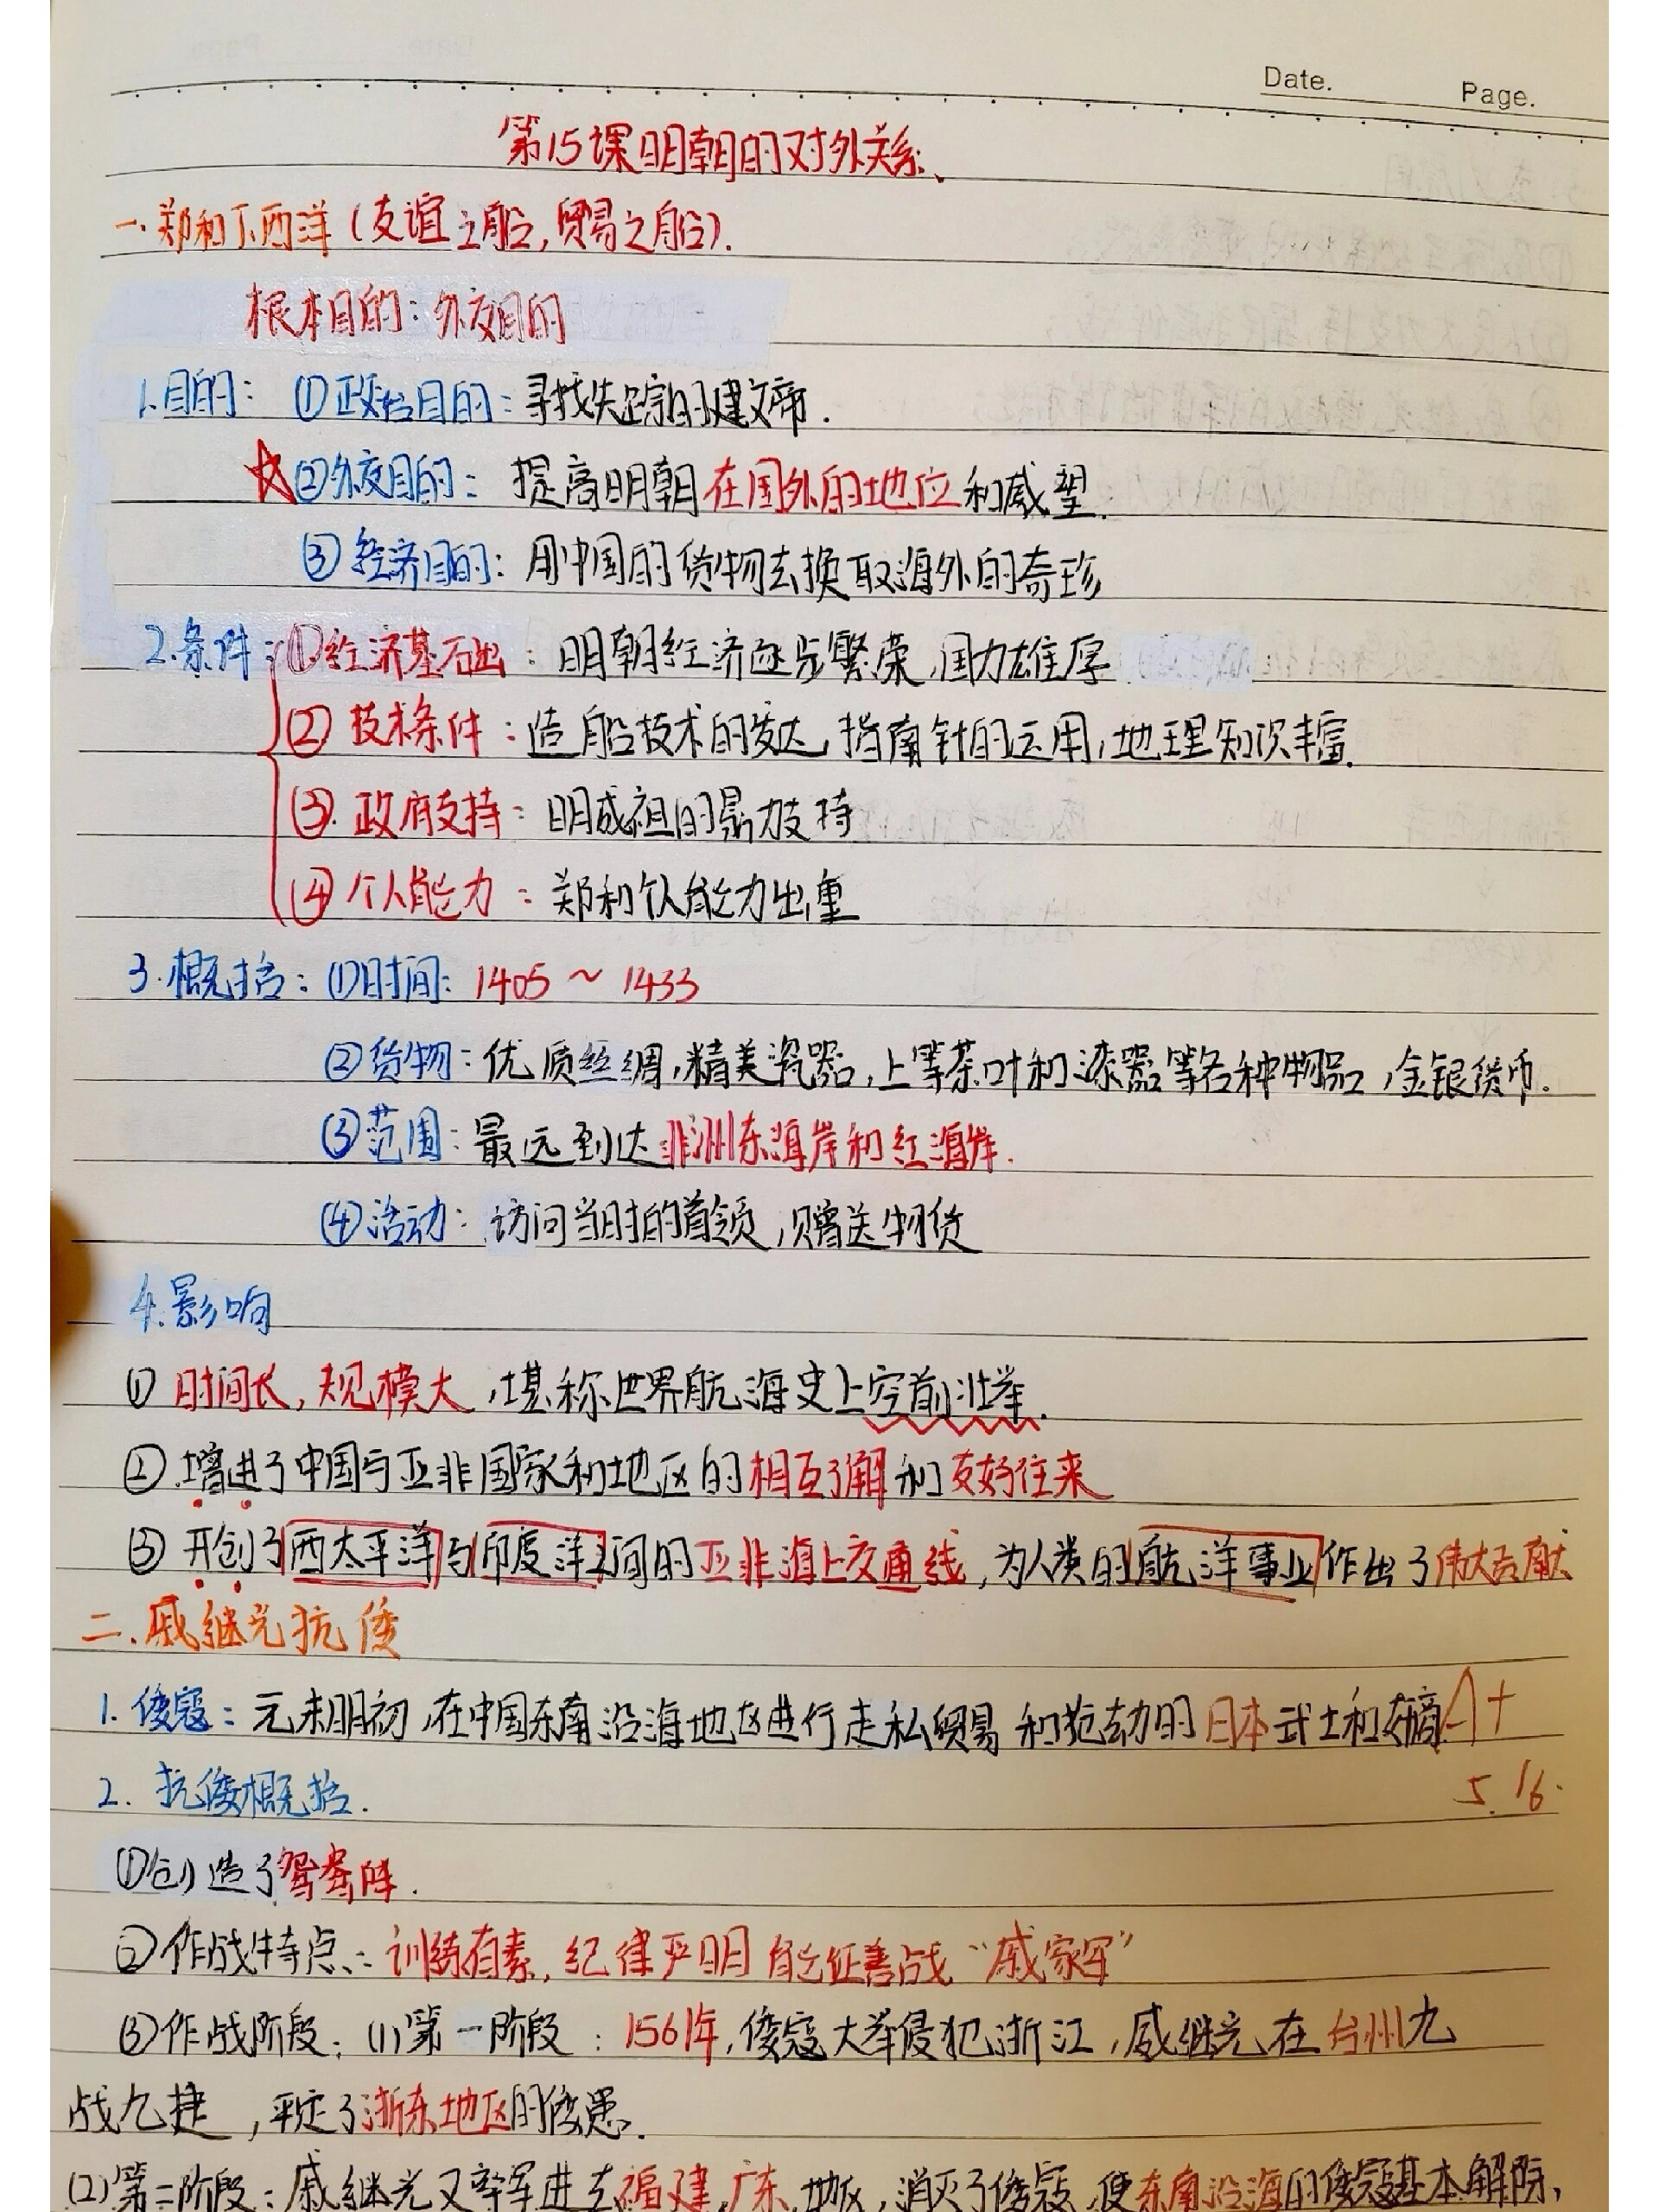 Date. Page.
第15课明朝的对外关系
一.郑和下西洋(友谊之船,贸易之船).
根本目的:外交目的
1.目的: ①政治目的:寻找失踪的建文帝.
②外交目的: 提高明朝在国外的地位和威望.
③经济目的:用中国的货物去换取海外的奇珍
2.条件:①经济基础:明朝经济逐步繁荣,国力雄厚
②技术条件:造船技术的发达,指南针的运用,地理知识丰富.
③.政府支持:明成祖的鼎力支持
④个人能力:郑和个人能力出重
3.概括:①时间:1405~1433
②货物:优质丝绸,精美瓷器,上等茶叶和漆器等各种物品,金银货币.
③范围:最远到达非洲东海岸和红海岸.
④活动:访问当时的首领,赠送物货
4.影响
①时间长,规模大,堪称世界航海史上空前壮举.
②增进了中国与亚非国家和地区的相互了解和友好往来
③开创了西太平洋与印度洋之间的亚非海上交通线,为人类的航洋事业作出了伟大贡献
二.戚继光抗倭
1.倭寇:元末明初,在中国东南沿海地区进行走私贸易和抢劫的日本武士和奸商 A+
2.抗倭概括. 5.16.
①创造了鸳鸯阵.
②作战特点:训练有素,纪律严明 能征善战“戚家军”
③作战阶段:(1)第一阶段:1561年,倭寇大举侵犯浙江,戚继光在台州九
战九捷,平定了浙东地区的倭患.
(2)第二阶段:戚继光又率军进去福建,广东,地区,消灭了倭寇,使东南沿海的倭寇基本解除,